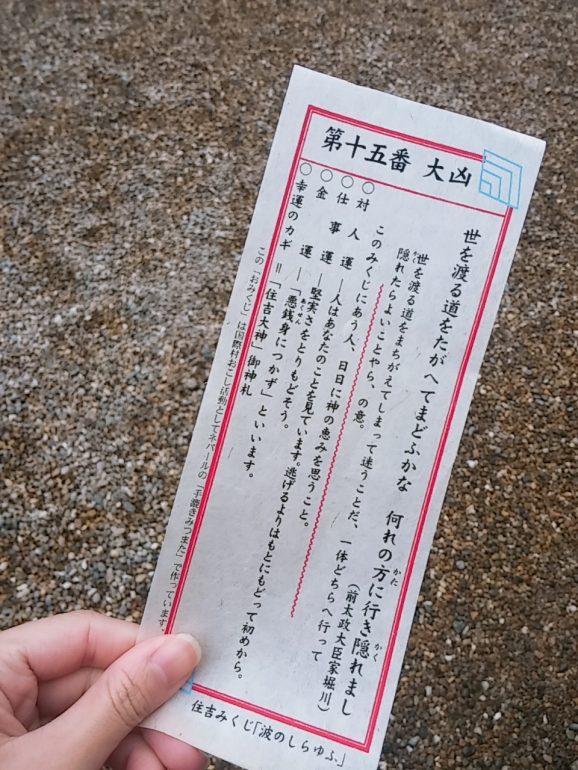 第十五番 大凶
世を渡る道をたがへてまどふかな 何れの方(かた)に行き隠(かく)れまし
(前太政大臣家堀川)
世を渡る道をまちがえてしまって迷うことだ、一体どちらへ行って
隠(かく)れたらよいことやら、の意。
このみくじにあう人、日日に神の恵みを思うこと。
○対人運―人はあなたのことを見ています。逃げるよりはもとにもどって初めから。
○仕事運―堅実さをとりもどそう。
○金運―「悪銭(あくせん)身につかず」といいます。
○幸運のカギ＝「住吉大神」御神札
この「おみくじ」は国際村おこし活動としてネパールの「手漉きみつまた」で作っています
住吉みくじ「波のしらゆふ」